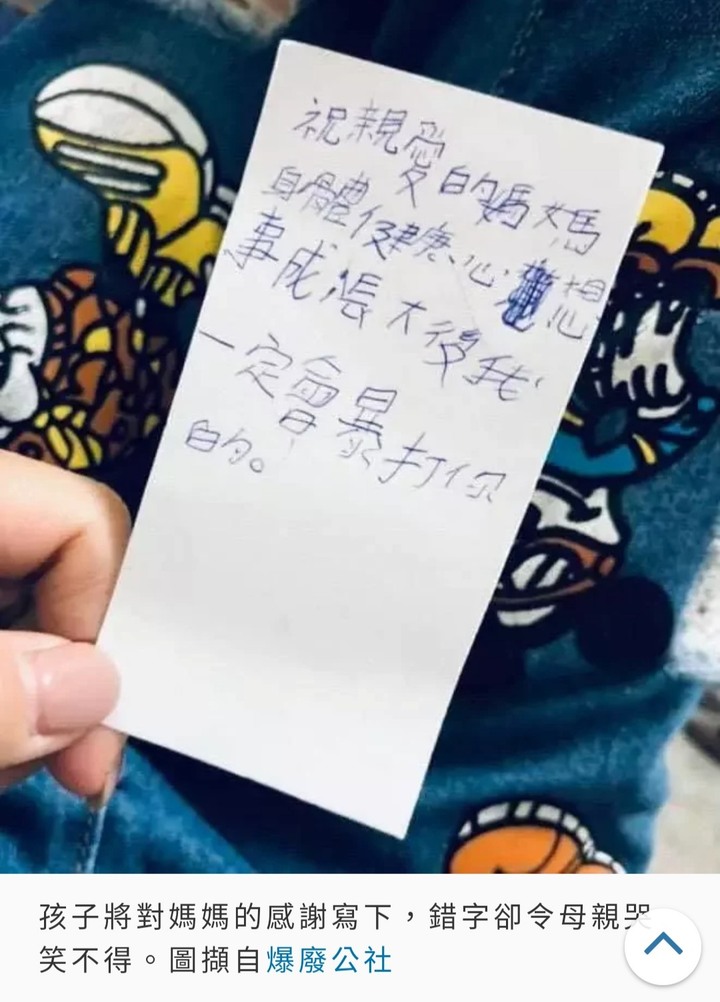 祝親愛的媽媽
身體健康心想
事成張大後我
一定會暴打你
的。
孩子將對媽媽的感謝寫下，錯字卻令母親哭
笑不得。圖擷自爆廢公社